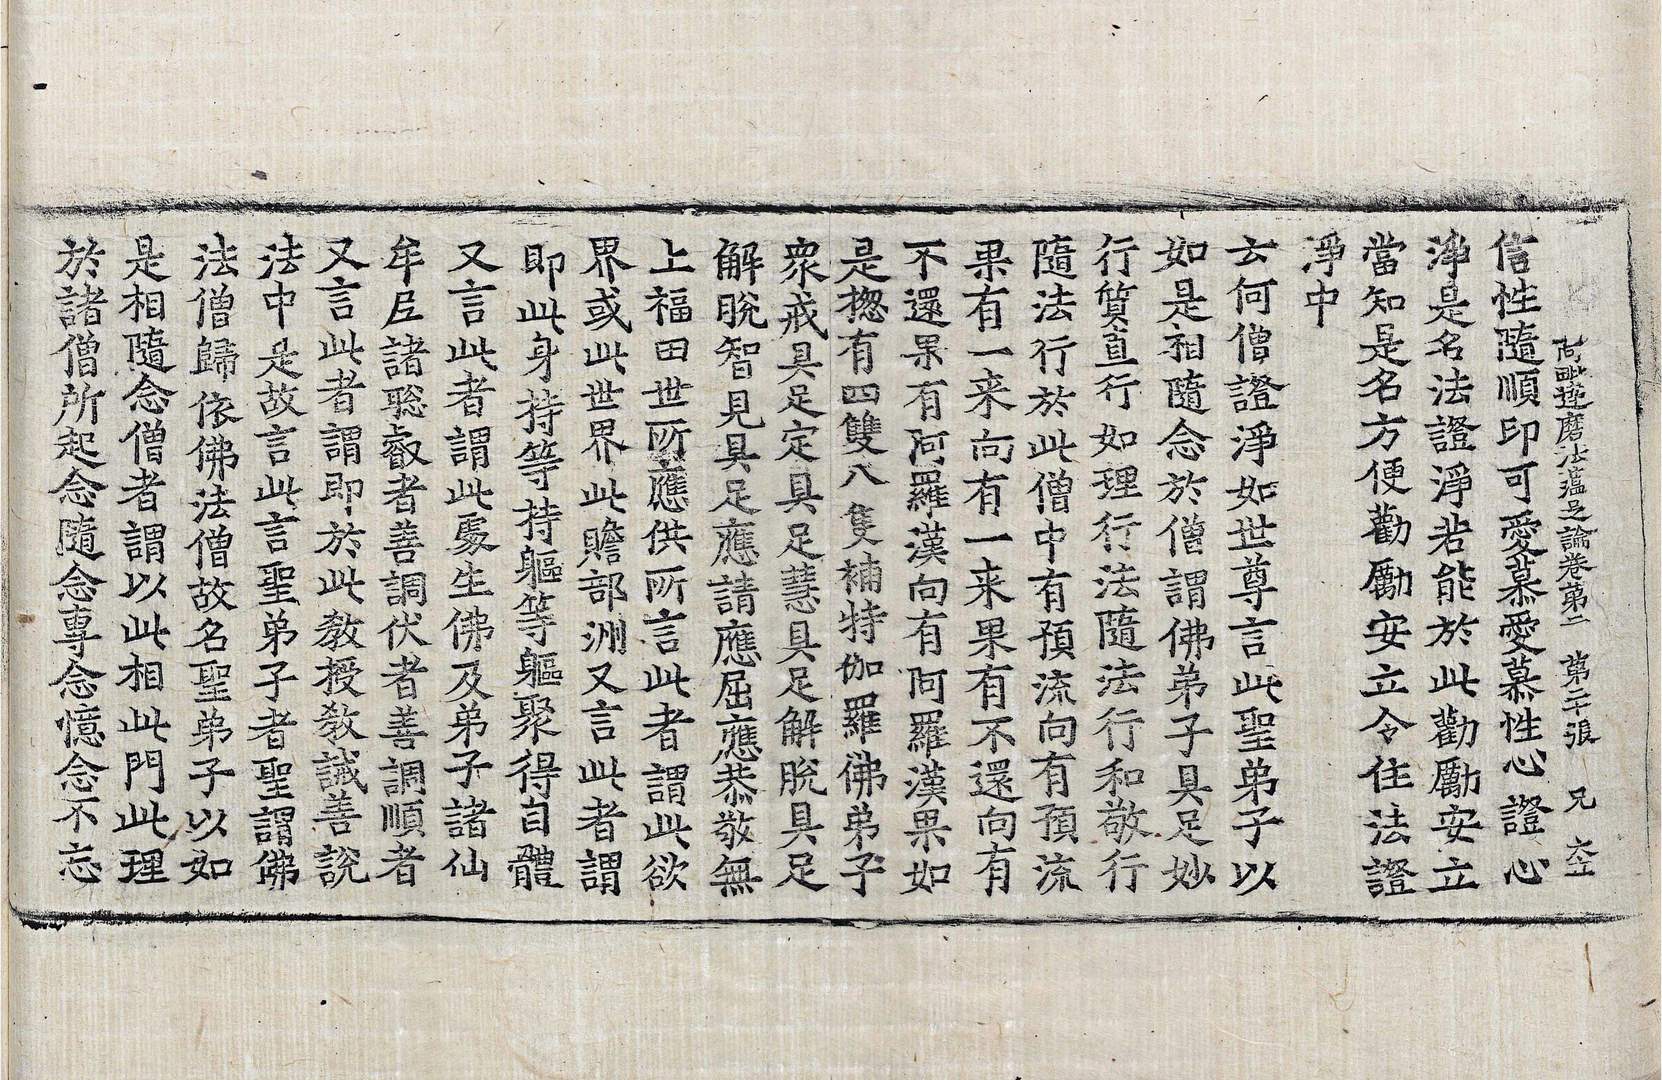 阿毗達磨法蘊足論卷第二　第二十張　兄
信性隨順印可愛慕愛慕性心證心
淨是名法證淨若能於此勸勵安立
當知是名方便勸勵安立令住法證
淨中
云何僧證淨如世尊言此聖弟子以
如是相隨念於僧謂佛弟子具足妙
行質直行如理行法隨法行和敬行
隨法行於此僧中有預流向有預流
果有一来向有一来果有不還向有
不還果有阿羅漢向有阿羅漢果如
是揔有四雙八隻補特伽羅佛弟子
衆戒具足定具足慧具足解脫具足
解脫智見具足應請應屈應恭敬無
上福田世所應供所言此者謂此欲
界或此世界此贍部洲又言此者謂
即此身持等持軀等軀聚得自體
又言此者謂此處生佛及弟子諸仙
牟尼諸聡叡者善調伏者善調順者
又言此者謂即於此教授教誡善說
法中是故言此言聖弟子者聖謂佛
法僧歸依佛法僧故名聖弟子以如
是相隨念僧者謂以此相此門此理
於諸僧所起念隨念專念憶念不忘